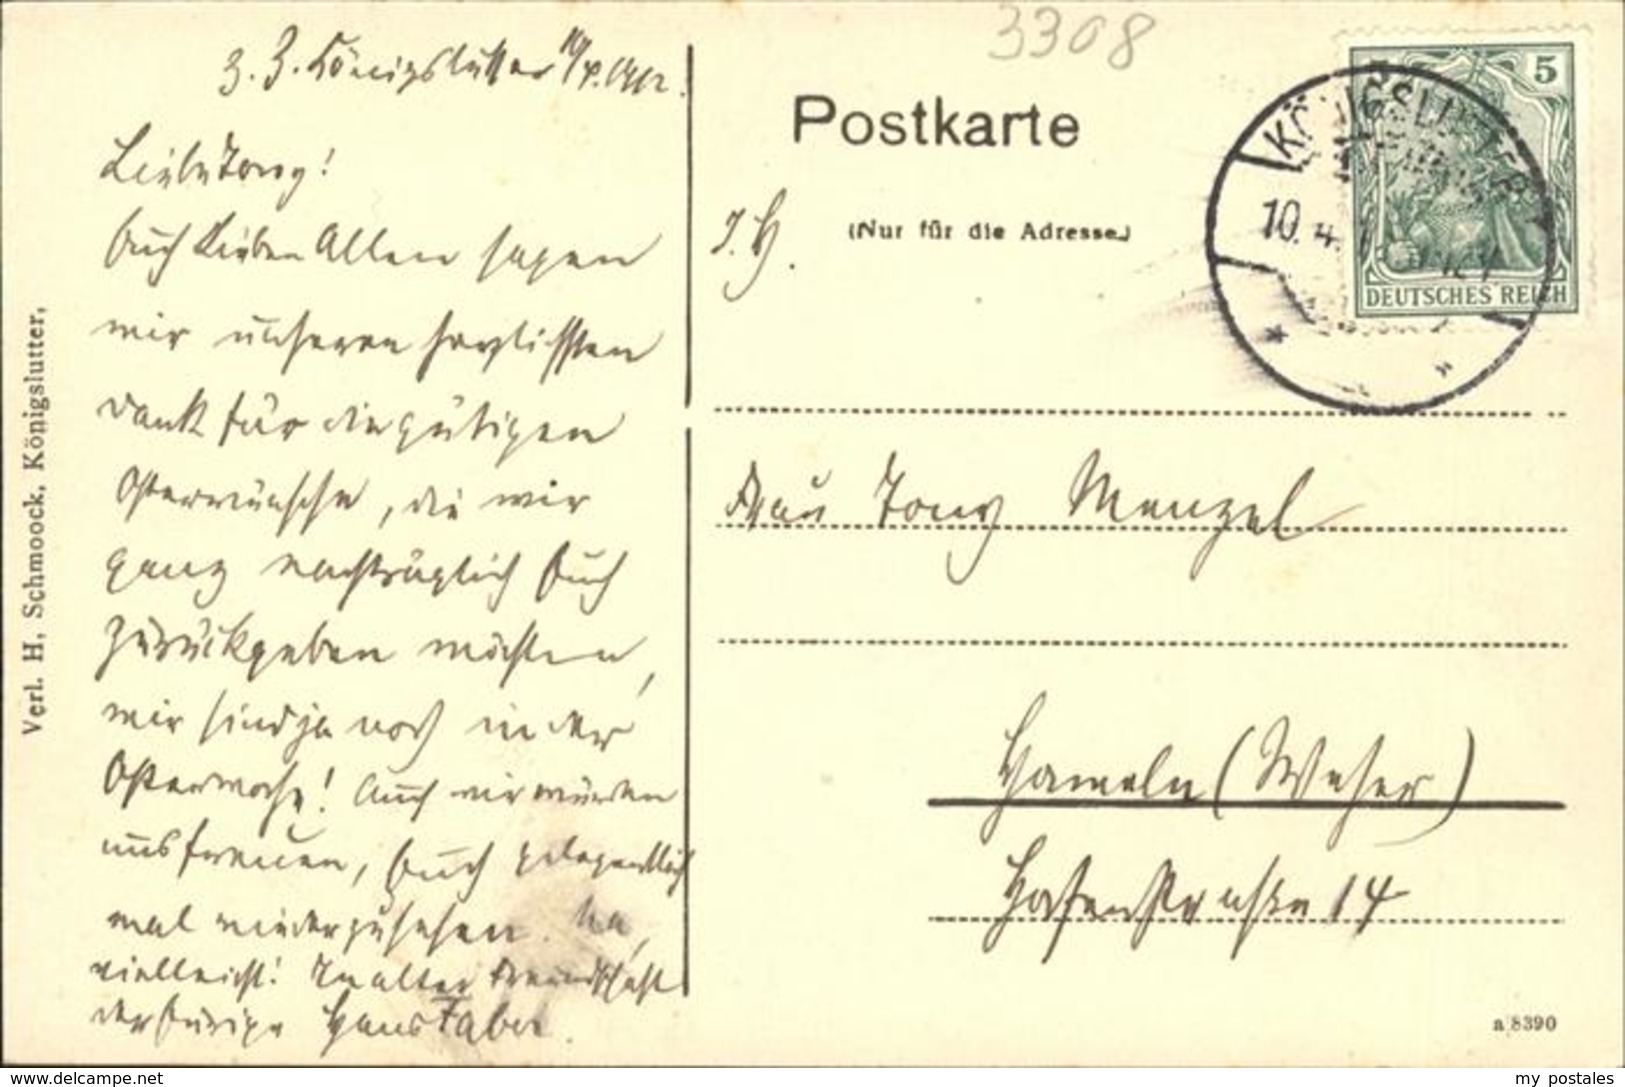 3308
z. Z. Königslutter 10/4. 1912.
Liebe Tony!
Euch Lieben Allen sagen
wir unseren herzlichsten
Dank für die gütigen
Osterwünsche, die wir
ganz nachträglich Euch
zurückgeben möchten,
wir sind ja noch in der
Osterwoche! Auch wir würden
uns freuen, Euch gelegentlich
mal wiederzusehen. Na,
vielleicht! In alter Freundschaft
der Eurige Hans Faber.
Verl. H. Schmoock, Königslutter,
Postkarte
(Nur für die Adresse)
5
DEUTSCHES REICH
KÖNIGSLUTTER
10. 4. 1
Frau Tony Menzel
Hameln (Weser)
Hafenstraße 14
a 8390
www.delcampe.net
my postales